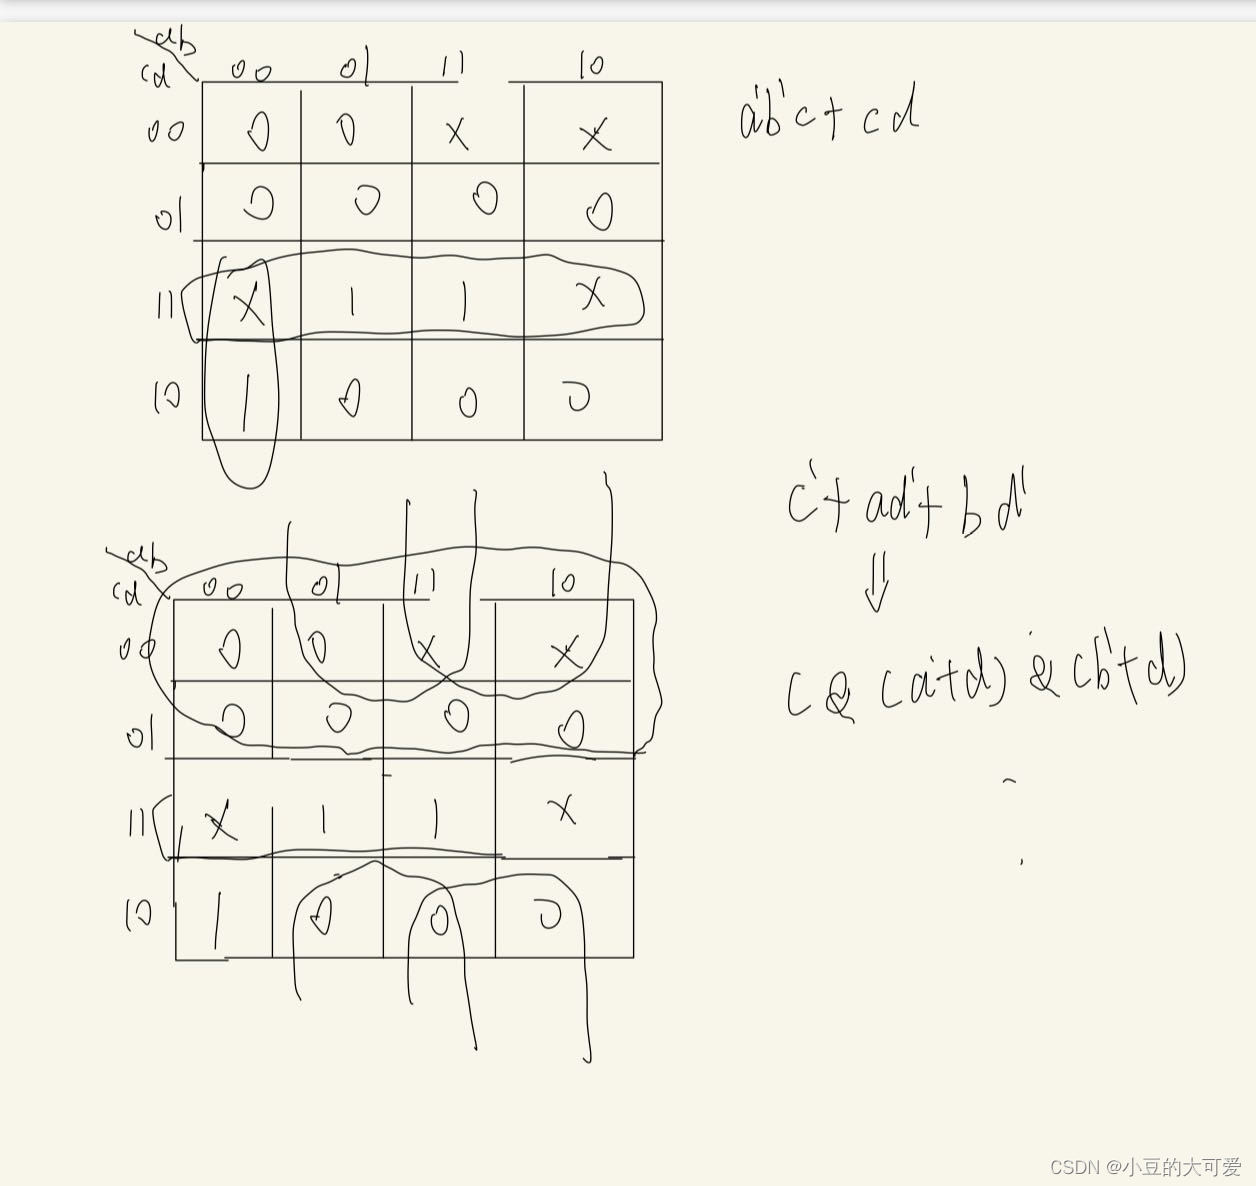 ab
cd 00 01 11 10
00 0 0 x x
01 0 0 0 0
11 x 1 1 x
10 1 0 0 0
a'b'c + cd
c' + ad' + bd'
⇓
c & (a'+d) & (b'+d)
ab
cd 00 01 11 10
00 0 0 x x
01 0 0 0 0
11 x 1 1 x
10 1 0 0 0
CSDN @小豆的大可爱